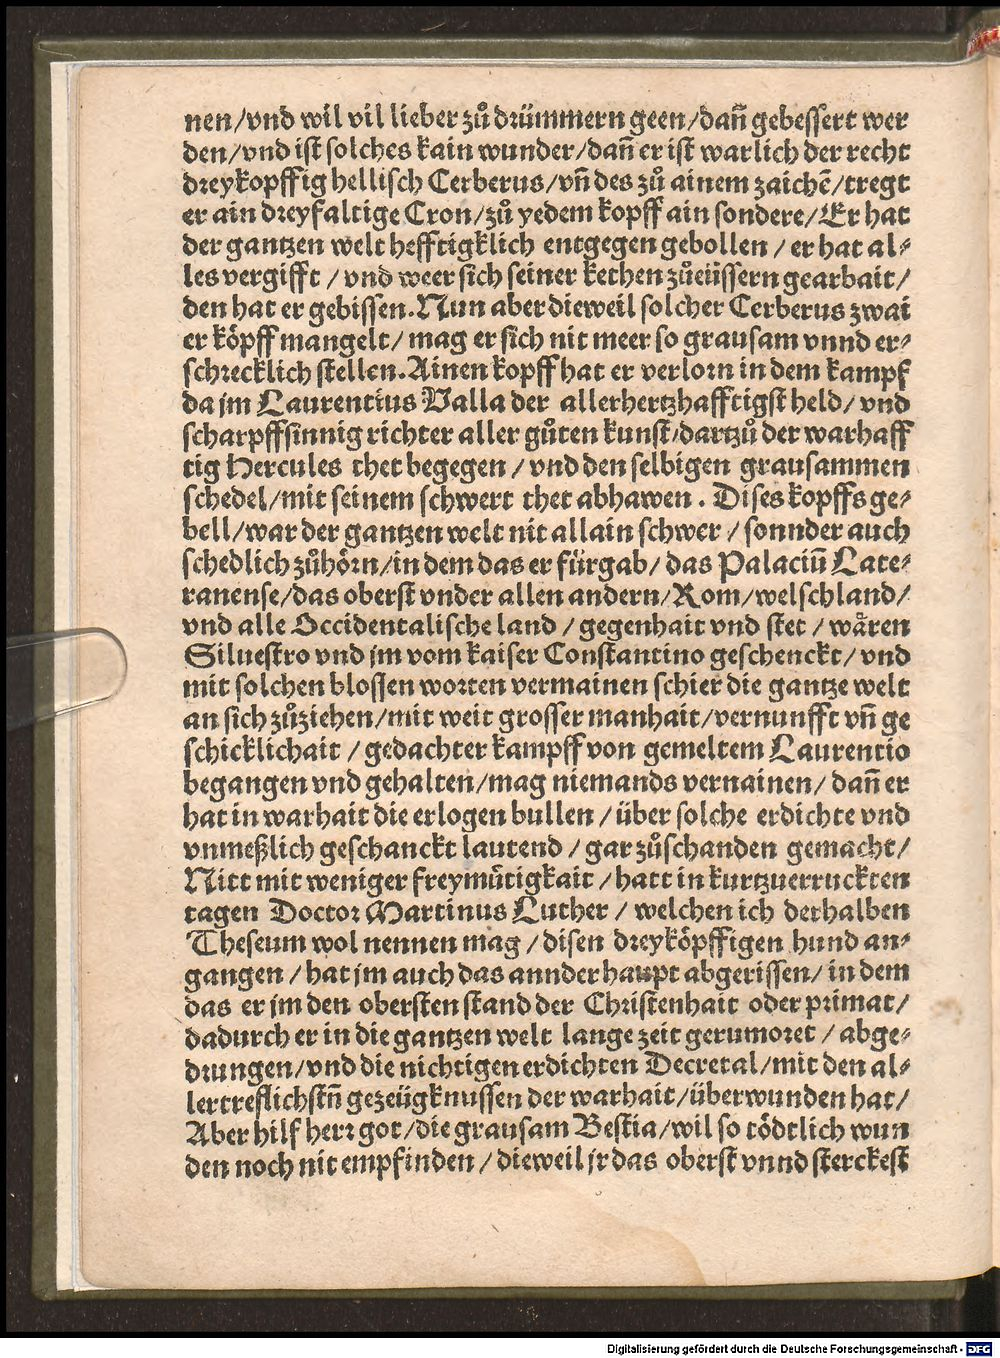 nen/vnd wil vil lieber zů drümmern geen/dañ gebessert wer
den/vnd ist solches kain wunder/dañ er ist warlich der recht
dreykopffig hellisch Cerberus/vñ des zů ainem zaichē/tregt
er ain dreyfaltige Cron/zů yedem kopff ain sondere/Er hat
der gantzen welt hefftigklich entgegen gebollen/er hat al⸗
les vergifft/vnd weer sich seiner kethen zůeüssern gearbait/
den hat er gebissen. Nun aber dieweil solcher Cerberus zwai
er köpff mangelt/mag er sich nit meer so grausam vnnd er⸗
schrecklich stellen. Ainen kopff hat er verlorn in dem kampf
da jm Laurentius Valla der allerhertzhafftigst held/vnd
scharpffsinnig richter aller gůten kunst/dartzů der warhaff
tig Hercules thet begegen/vnd den selbigen grausammen
schedel/mit seinem schwert thet abhawen. Dises kopffs ge⸗
bell/war der gantzen welt nit allain schwer/sonnder auch
schedlich zůhörn/in dem das er fürgab/das Palaciū Late⸗
ranense/das oberst vnder allen andern/Rom/welschland/
vnd alle Occidentalische land/gegenhait vnd stet/wären
Siluestro vnd jm vom kaiser Constantino geschenckt/vnd
mit solchen blossen worten vermainen schier die gantze welt
an sich zůziehen/mit weit grosser manhait/vernunfft vñ ge
schicklichait/gedachter kampff von gemeltem Laurentio
begangen vnd gehalten/mag niemands vernainen/dañ er
hat in warhait die erlogen bullen/über solche erdichte vnd
vnmeßlich geschanckt lautend/gar zůschanden gemacht/
Nitt mit weniger freymütigkait/hatt in kurtzuerruckten
tagen Doctor Martinus Luther/welchen ich derhalben
Theseum wol nennen mag/disen dreyköpffigen hund an⸗
gangen/hat jm auch das annder haupt abgerissen/in dem
das er jm den obersten stand der Christenhait oder primat/
dadurch er in die gantzen welt lange zeit gerumoret/abge⸗
drungen/vnd die nichtigen erdichten Decretal/mit den al⸗
lertreflichstñ gezeügknussen der warhait/überwunden hat/
Aber hilf herr got/die grausam Bestia/wil so tödtlich wun
den noch nit empfinden/dieweil jr das oberst vnnd sterckest
Digitalisierung gefördert durch die Deutsche Forschungsgemeinschaft - DFG